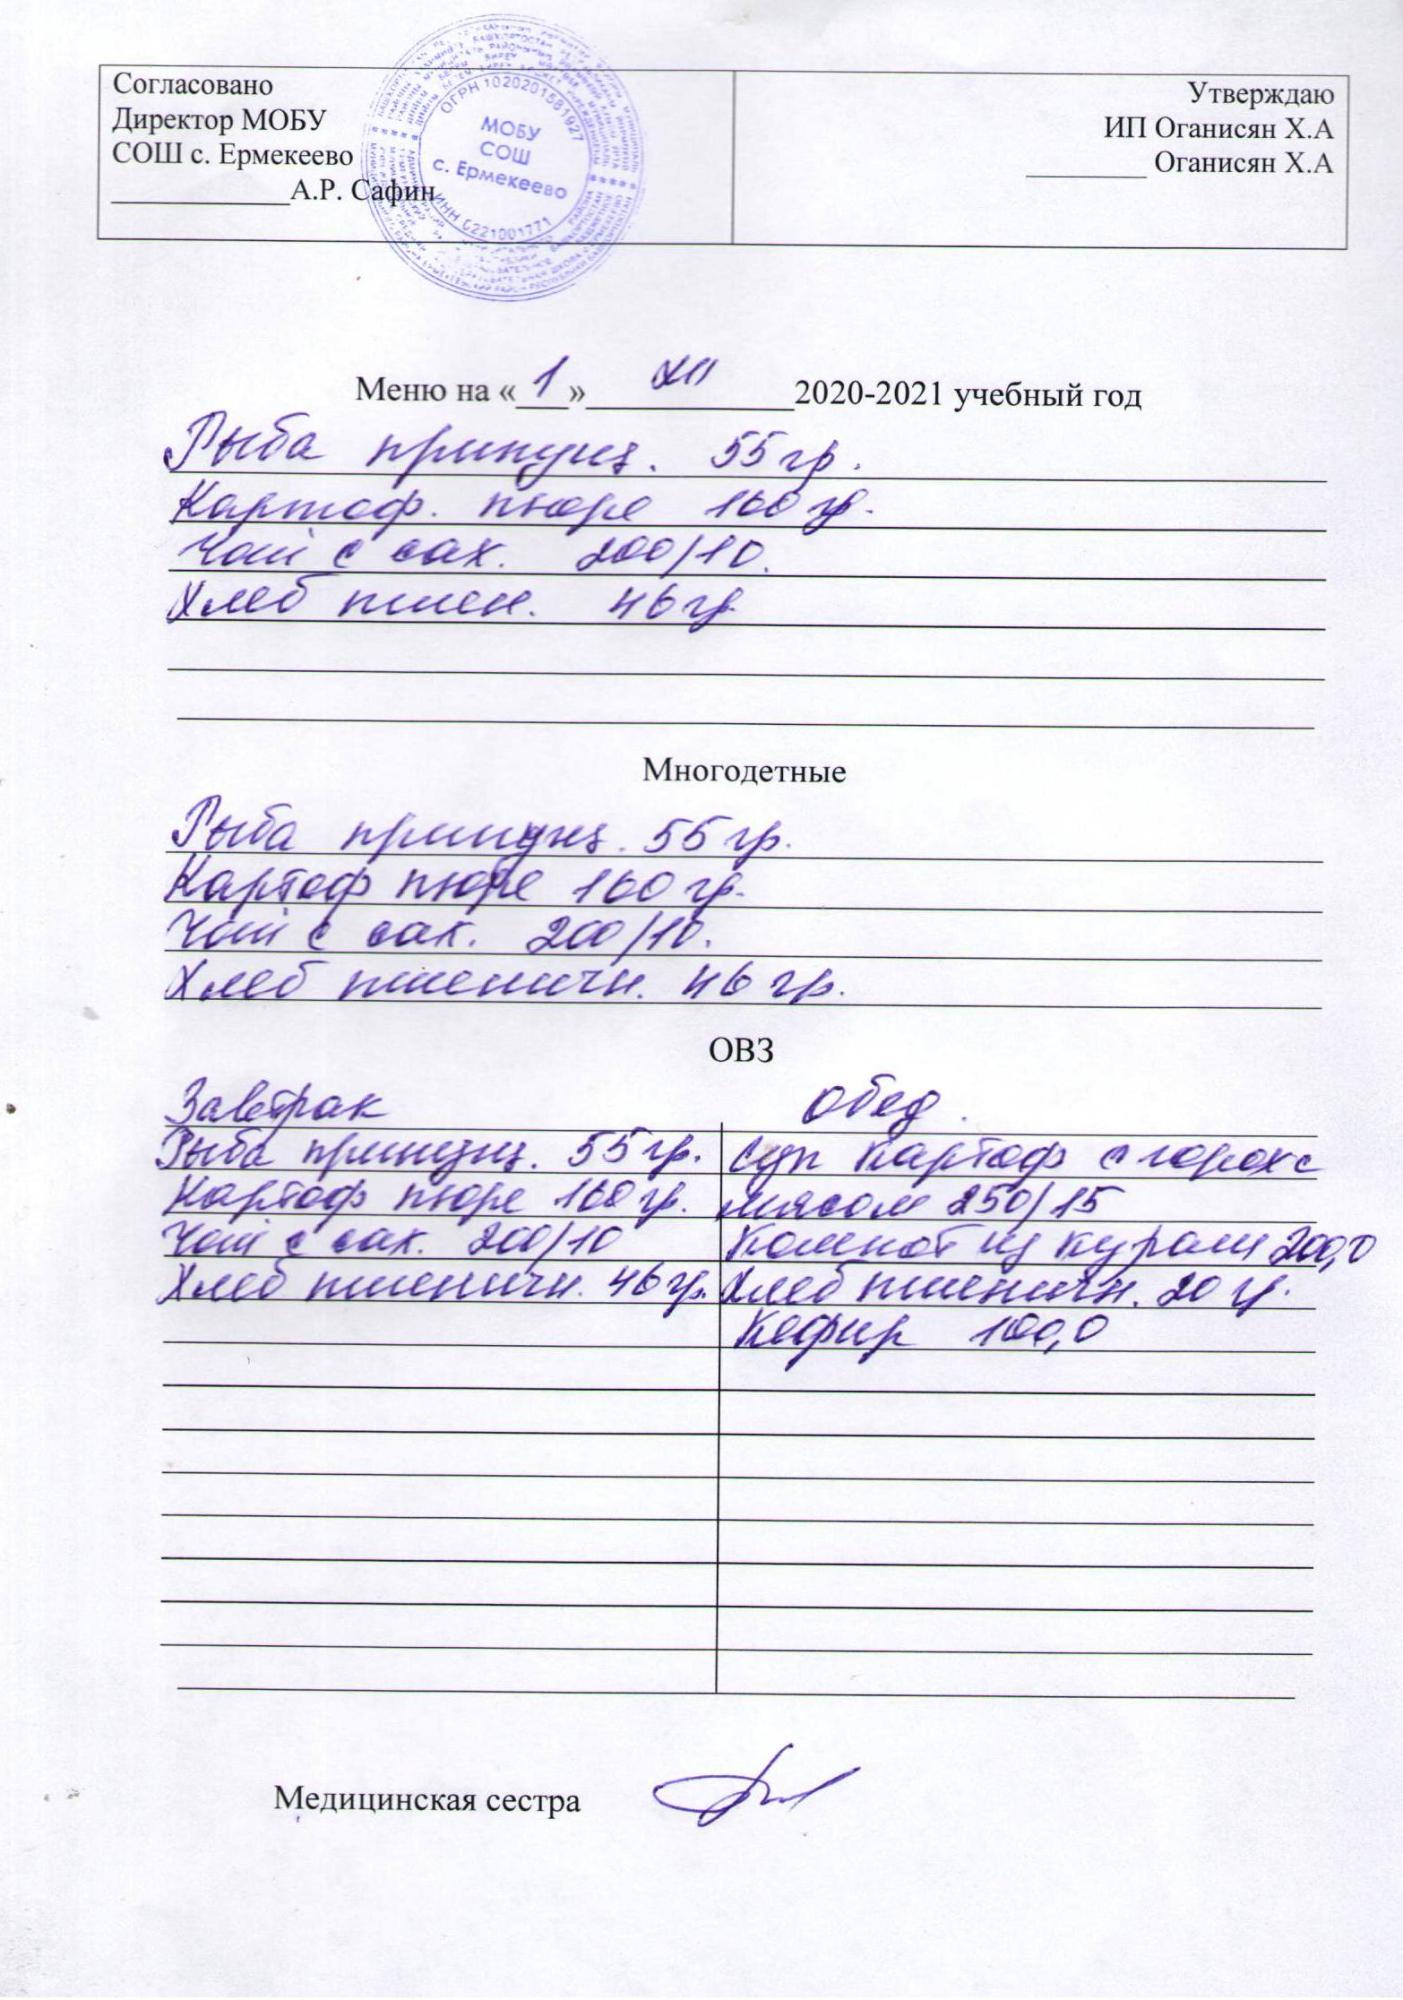 Согласовано
Директор МОБУ
СОШ с. Ермекеево
____________А.Р. Сафин
Утверждаю
ИП Оганисян Х.А
________ Оганисян Х.А
ОГРН 1020201581927
МОБУ
СОШ
с. Ермекеево
ИНН 0221001771
Меню на «1» XII 2020-2021 учебный год
Рыба припущ. 55 гр.
Картоф. пюре 160 гр.
Чай с сах. 200/10.
Хлеб пшен. 46 гр
Многодетные
Рыба припущ. 55 гр.
Картоф пюре 160 гр.
Чай с сах. 200/10.
Хлеб пшеничн. 46 гр.
ОВЗ
Завтрак
Рыба припущ. 55 гр.
Картоф пюре 160 гр.
Чай с сах. 200/10
Хлеб пшеничн. 46 гр.
Обед.
Суп картоф с горох с
мясом 250/15
Компот из кураги 200,0
Хлеб пшеничн. 20 гр.
Кефир 100,0
Медицинская сестра